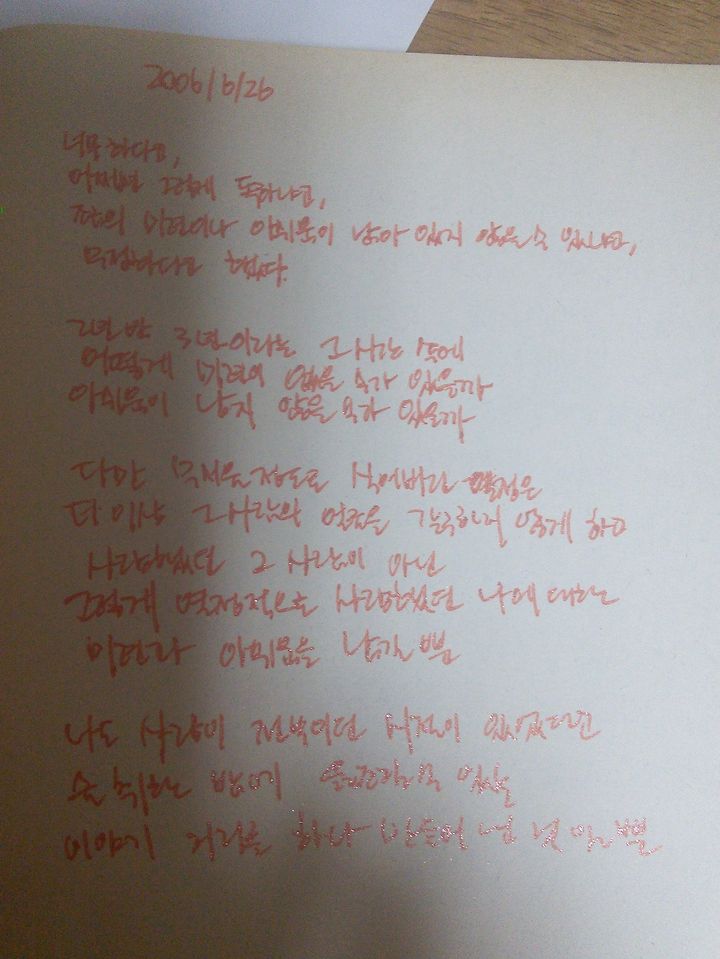 2006/6/26
너무하다고,
어쩌면 그렇게 독하냐고,
미련이나 아쉬움이 남아 있지 않을 수 있냐고,
무정하다고 했었다.
2년 반 3년이라는 그 시간 속에
어떻게 미련이 없을 수가 있을까
아쉬움이 남지 않을 수가 있을까
다만 무서울 정도로 식어버린 열정은
더 이상 그 사람과 연인을 하게 하고
사랑했었던 그 사람이 아닌
그렇게 열정적으로 사랑했었던 나에 대한
미련과 아쉬움을 남길 뿐
나도 사랑이 전부이던 시절이 있었다고
술 취하는 밤에 있을
이야기 거리를 하나 만들어 낸 것 일 뿐